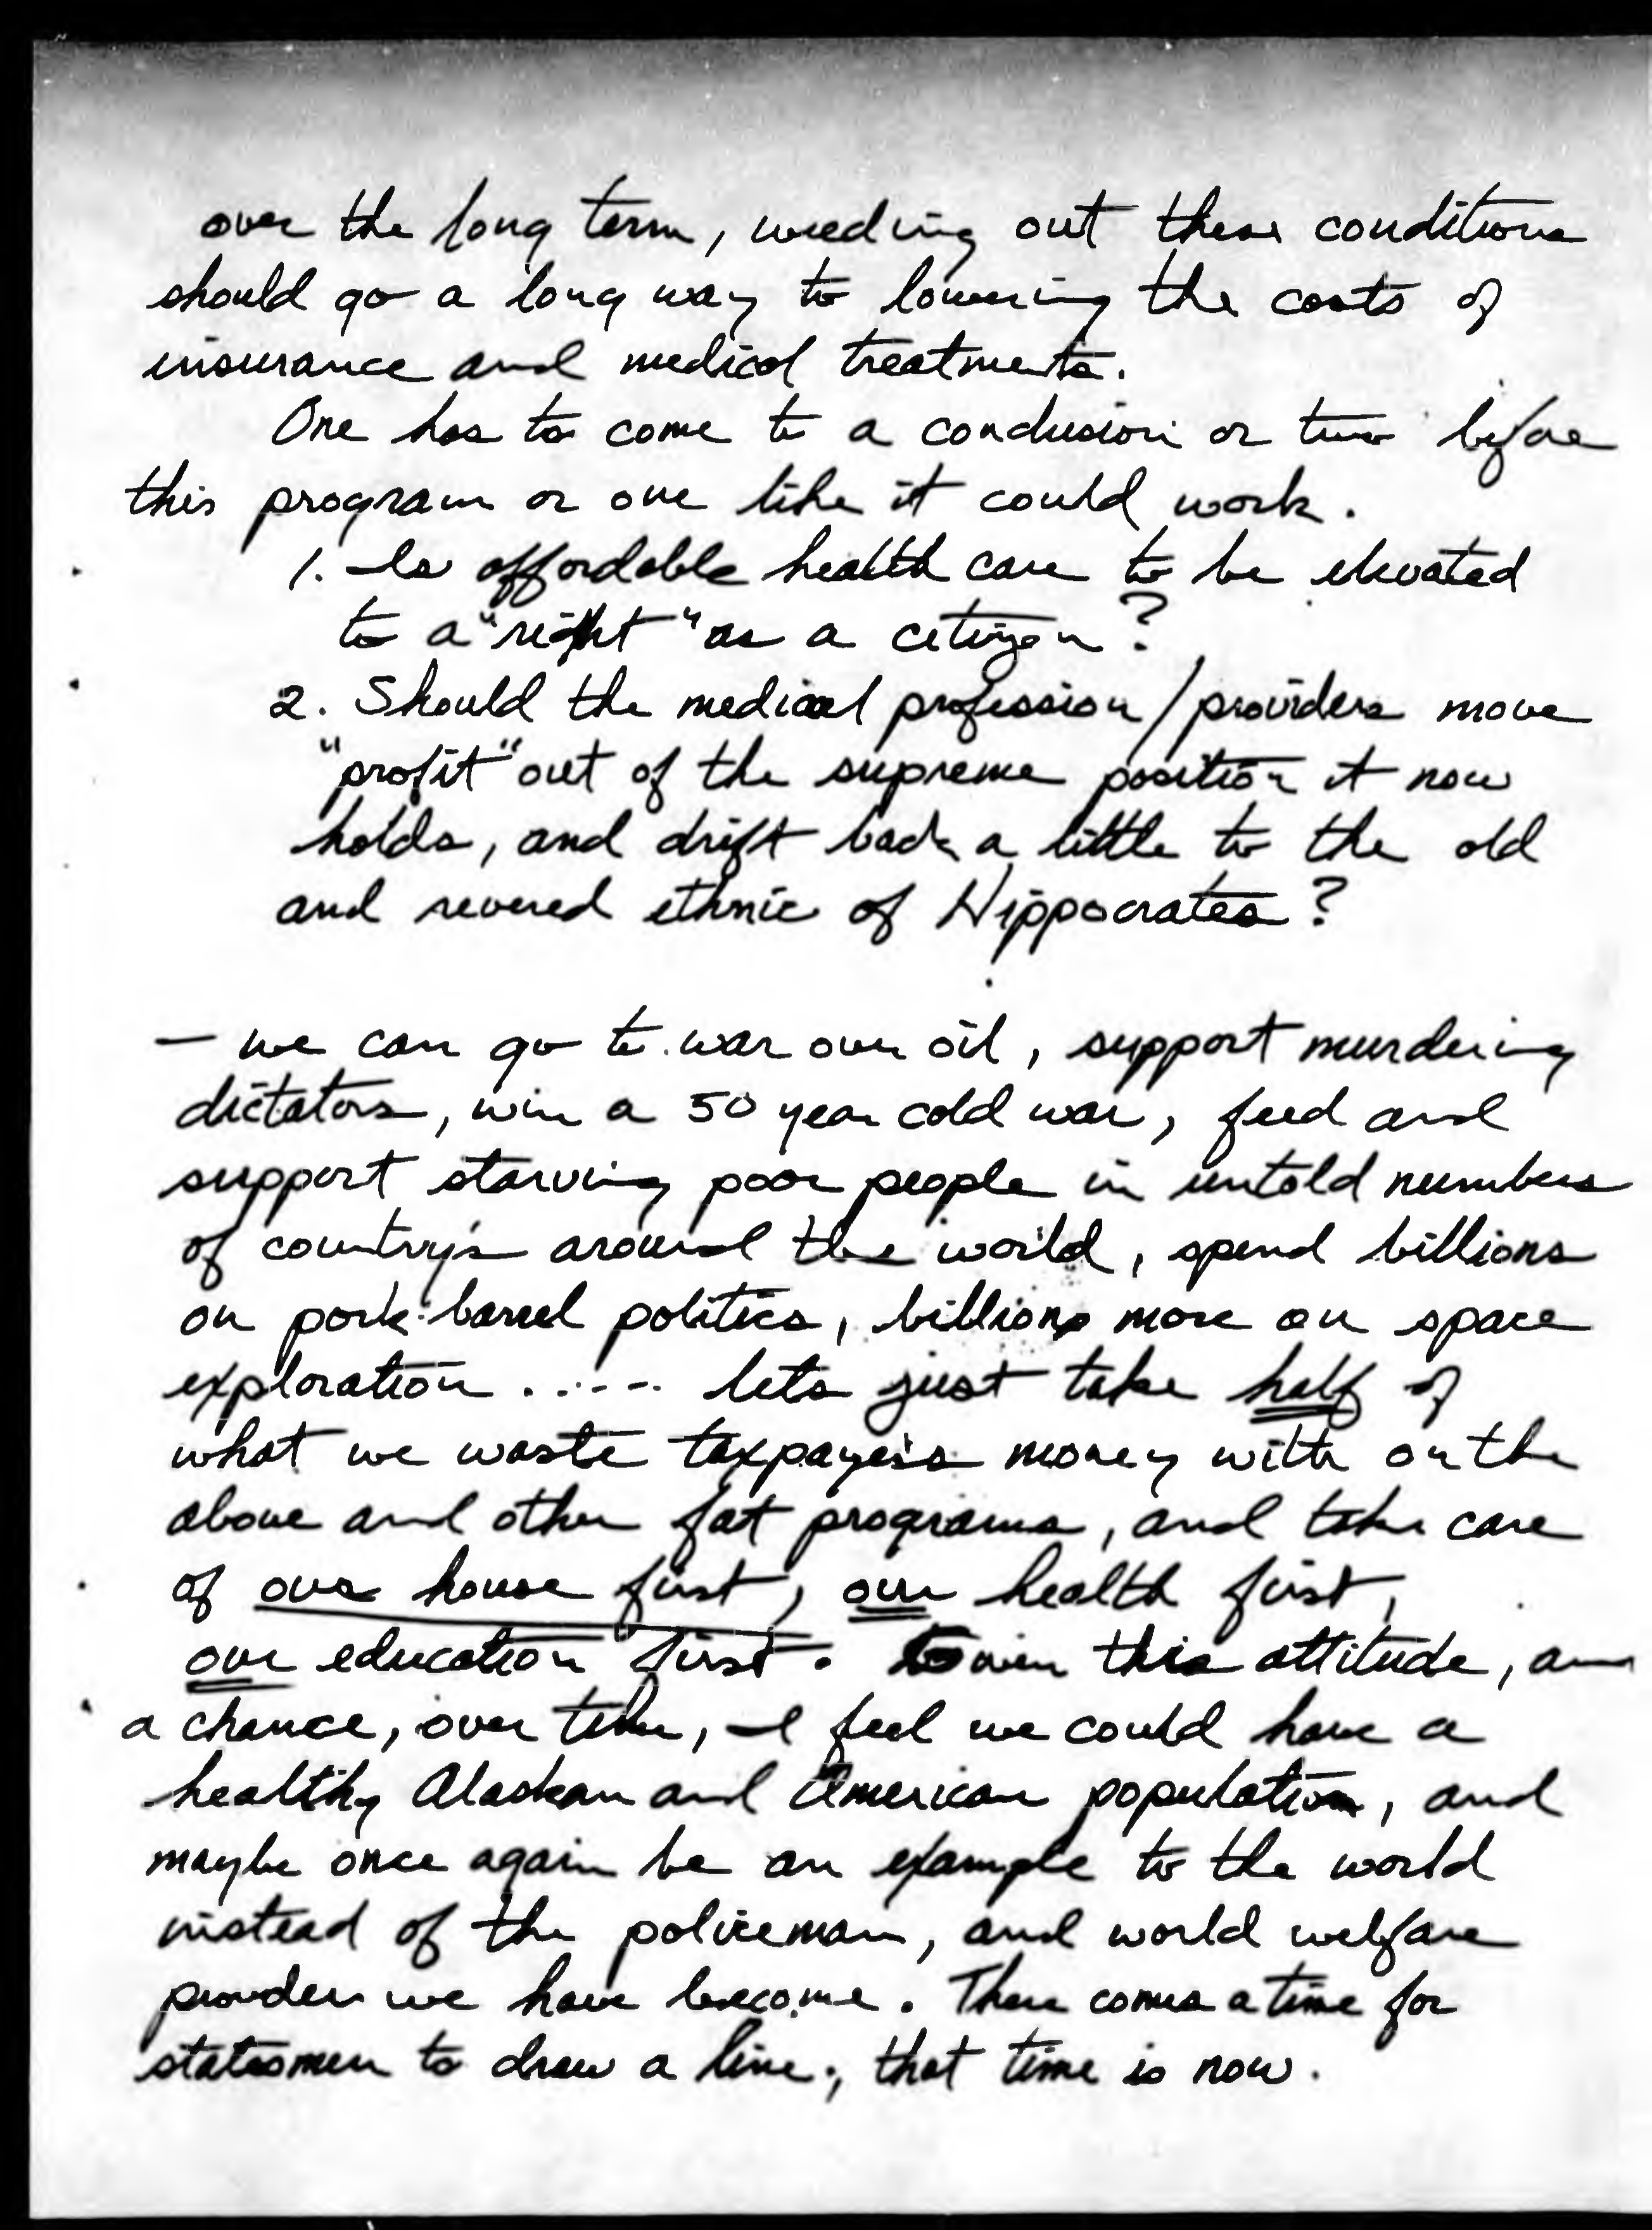 over the long term, weeding out these conditions
should go a long way to lowering the costs of
insurance and medical treatments.
One has to come to a conclusion or two before
this program or one like it could work.
1. Is affordable health care to be elevated
to a "right" as a citizen?
2. Should the medical profession/providers move
"profit" out of the supreme position it now
holds, and drift back a little to the old
and revered ethnic of Hippocrates?
— we can go to war over oil, support murdering
dictators, win a 50 year cold war, feed and
support starving poor people in untold numbers
of country's around the world, spend billions
on pork-barrel politics, billions more on space
exploration ..... lets just take half of
what we waste taxpayer's money with on the
above and other fat programs, and take care
of our house first, our health first,
our education first. Given this attitude, an
a chance, over time, I feel we could have a
healthy Alaskan and American population, and
maybe once again be an example to the world
instead of the policeman, and world welfare
provider we have become. There comes a time for
statesmen to draw a line; that time is now.